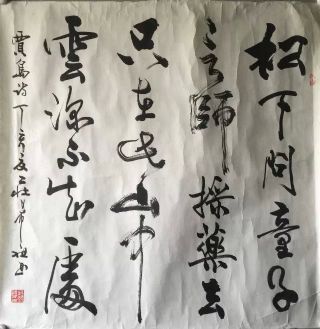 松下問童子
言師採藥去
只在此山中
雲深不知處
賈島詩丁亥夏